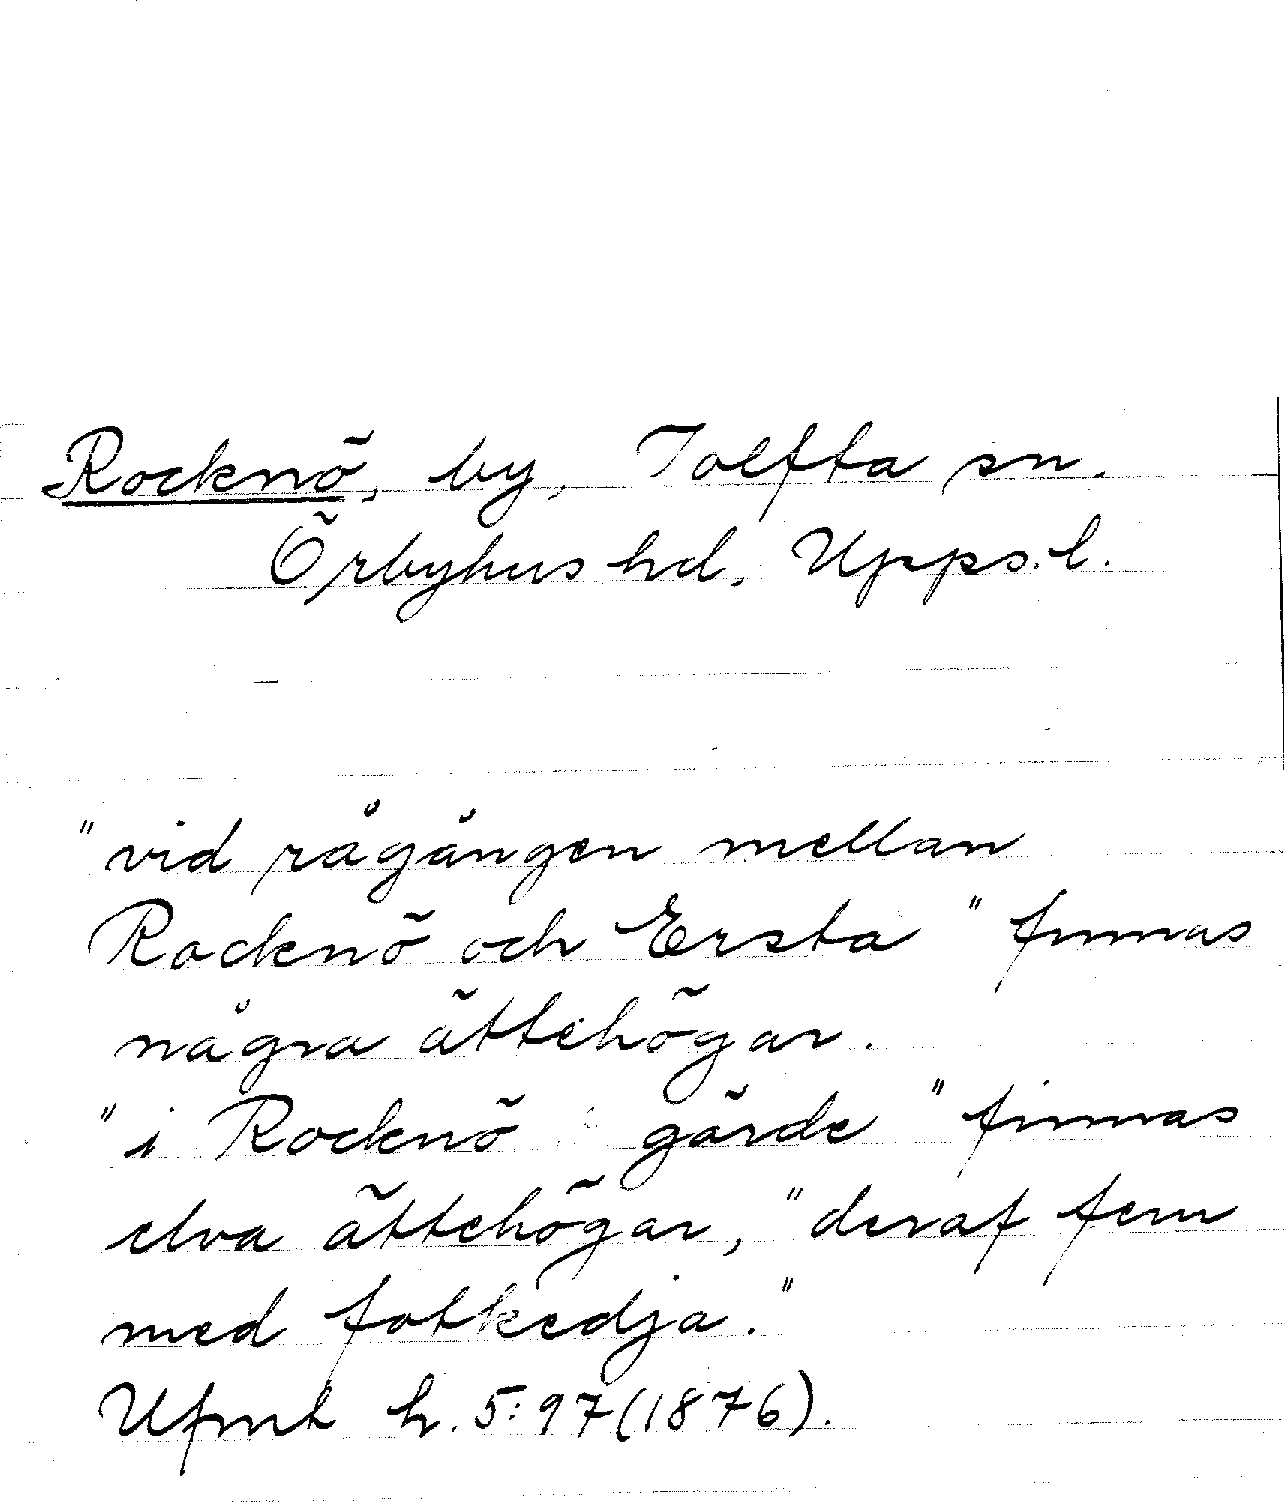 Rocknö, by, Tolfta sn.
Örbyhus hd. Upps.l.
"vid rågången mellan
Rocknö och Ersta" finnas
några ättehögar.
"i Rocknö gärde" finnas
elva ättehögar, "deraf fem
med fotkedja."
Ufmt h. 5:97(1876).